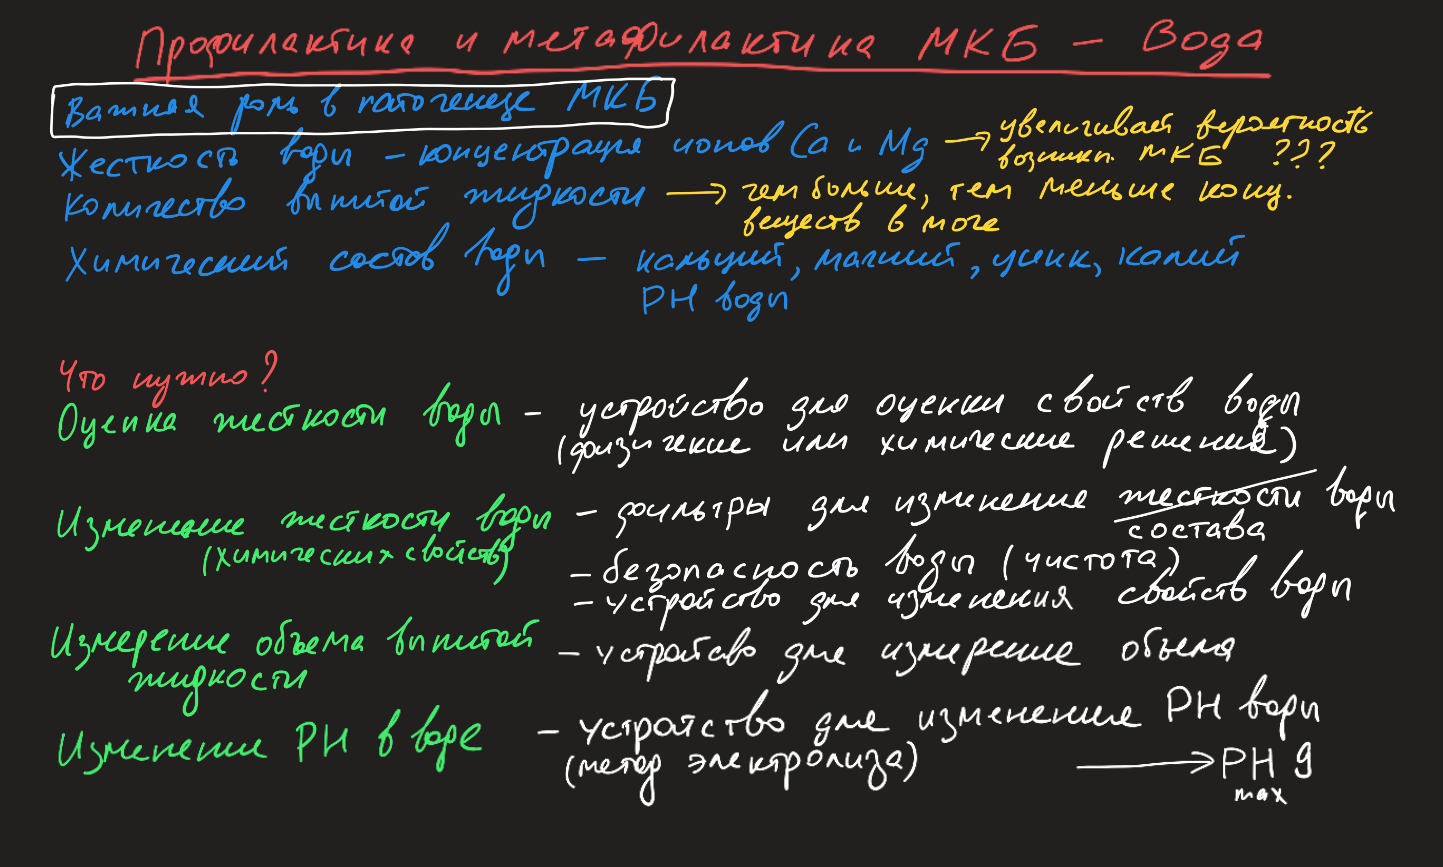 Профилактика и метафилактика МКБ – Вода
Важная роль в патогенезе МКБ
Жесткость воды – концентрация ионов Ca и Mg → увеличивает вероятность
возникн. МКБ ???
Количество выпитой жидкости → чем больше, тем меньше конц.
веществ в моче
Химический состав воды – кальций, магний, цинк, калий
PH воды
Что нужно?
Оценка жесткости воды – устройство для оценки свойств воды
(физические или химические решения)
Изменение жесткости воды – фильтры для изменение жесткости воды
(химических свойств) состава
– безопасность воды (чистота)
– устройство для изменения свойств воды
Измерение объема выпитой – устройство для измерение объема
жидкости
Изменение PH в воде – устройство для изменение PH воды
(метод электролиза) → PH 9
max